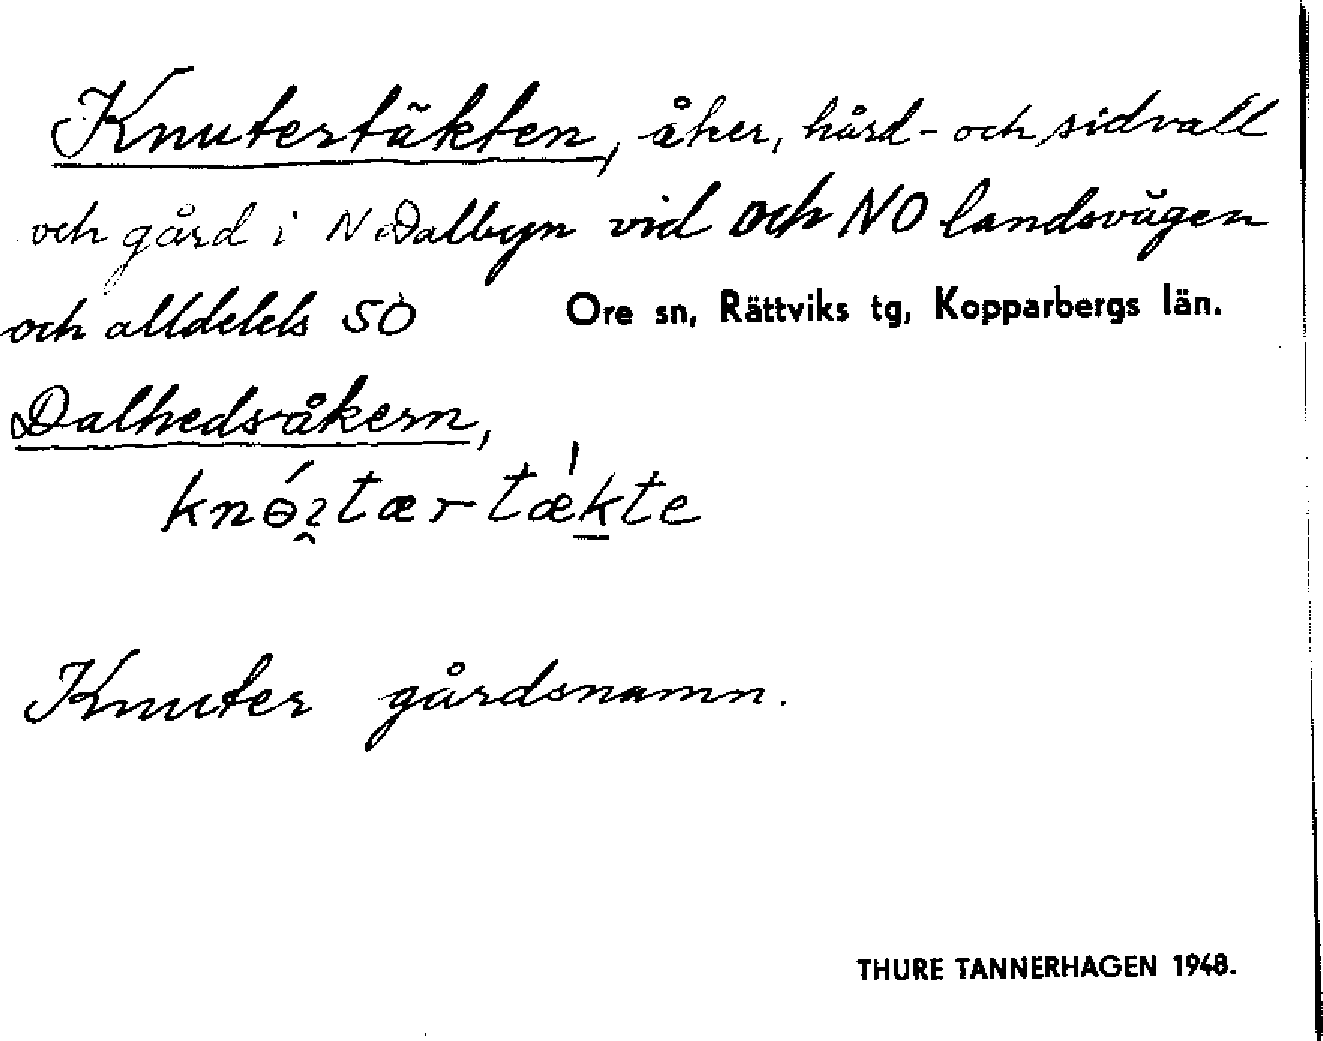 Knutertäkten, åker, hård- och sidvall
och gård i N Dalbyn vid och NO landsvägen
och alldeles SO Ore sn, Rättviks tg, Kopparbergs län.
Dalhedsåkern,
Knuter gårdsnamn.
THURE TANNERHAGEN 1948.